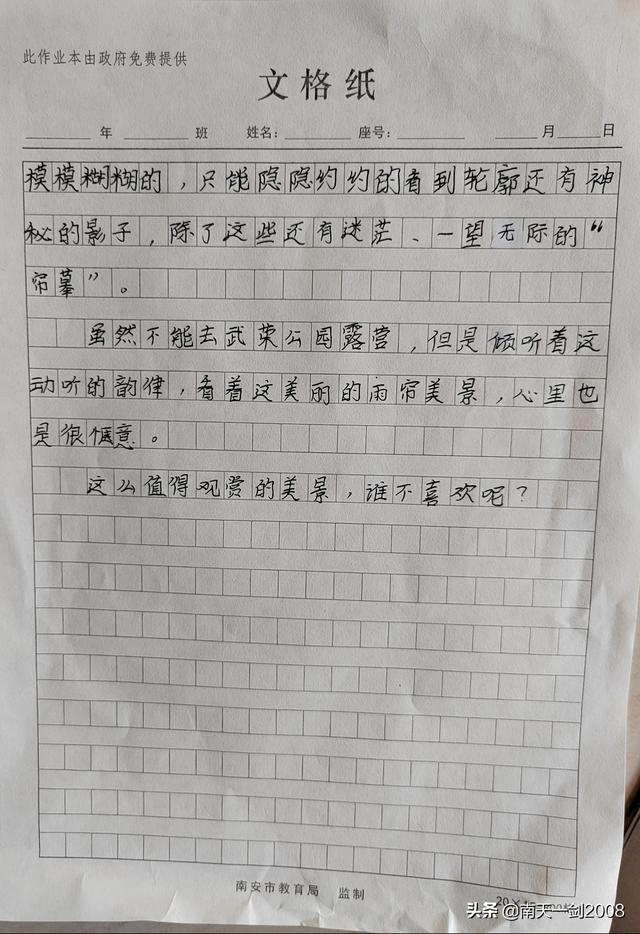 此作业本由政府免费提供
文格纸
年 班 姓名: 座号: 月 日
模模糊糊的，只能隐隐约约的看到轮廓还有神
秘的影子，除了这些还有迷茫、一望无际的“
帘幕”。
虽然不能去武荣公园露营，但是倾听着这
动听的韵律，看着这美丽的雨帘美景，心里也
是很惬意。
这么值得观赏的美景，谁不喜欢呢？
南安市教育局 监制
头条 @南天一剑2008